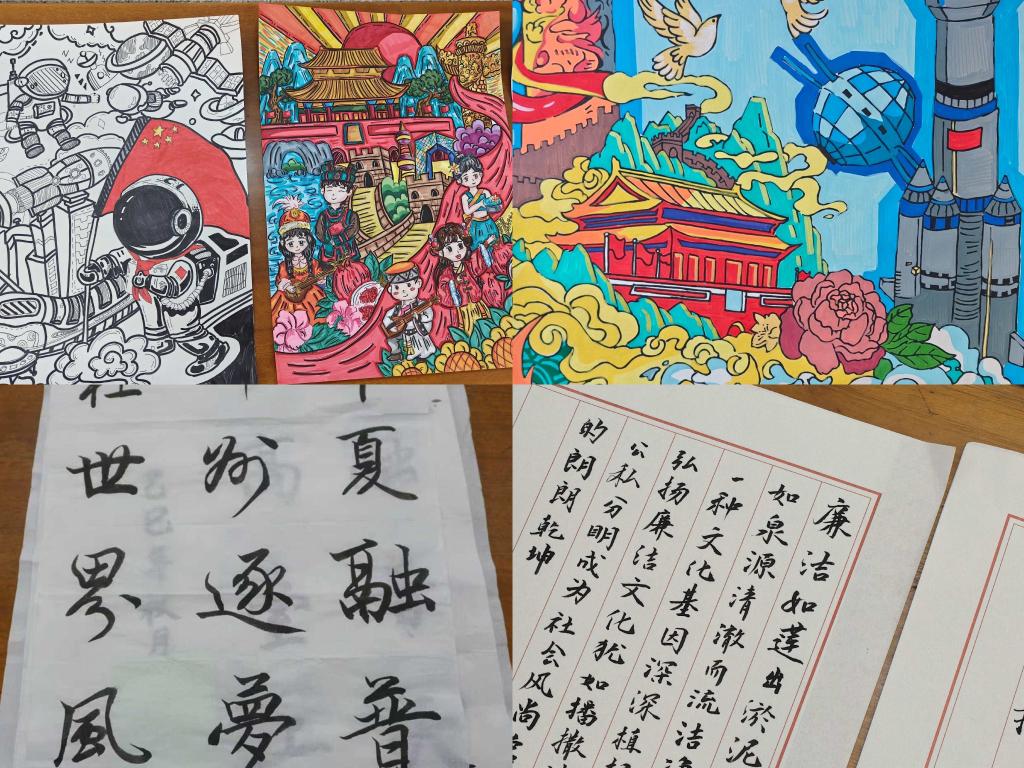 夏融普
州逐夢
世界風
廉洁如莲出淤泥
如泉源清澈而流洁
一种文化基因深深植
弘扬廉洁文化犹如播撒
公私分明成为社会风尚
的朗朗乾坤